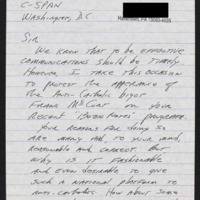 C-SPAN
Washington, DC
Haverstown, PA 19083-4525
Sir
We know that to be effective
communications should be timely
However I take this occasion
to protest the appearance of
the Anti-Catholic bigot
Frank McCourt on your
recent "Book Notes" program.
Your reasons for doing so
are away and, to your mind,
reasonable and correct. But
why is it fashionable
and even desirable to give
such a national platform to
anti-Catholics. How about some